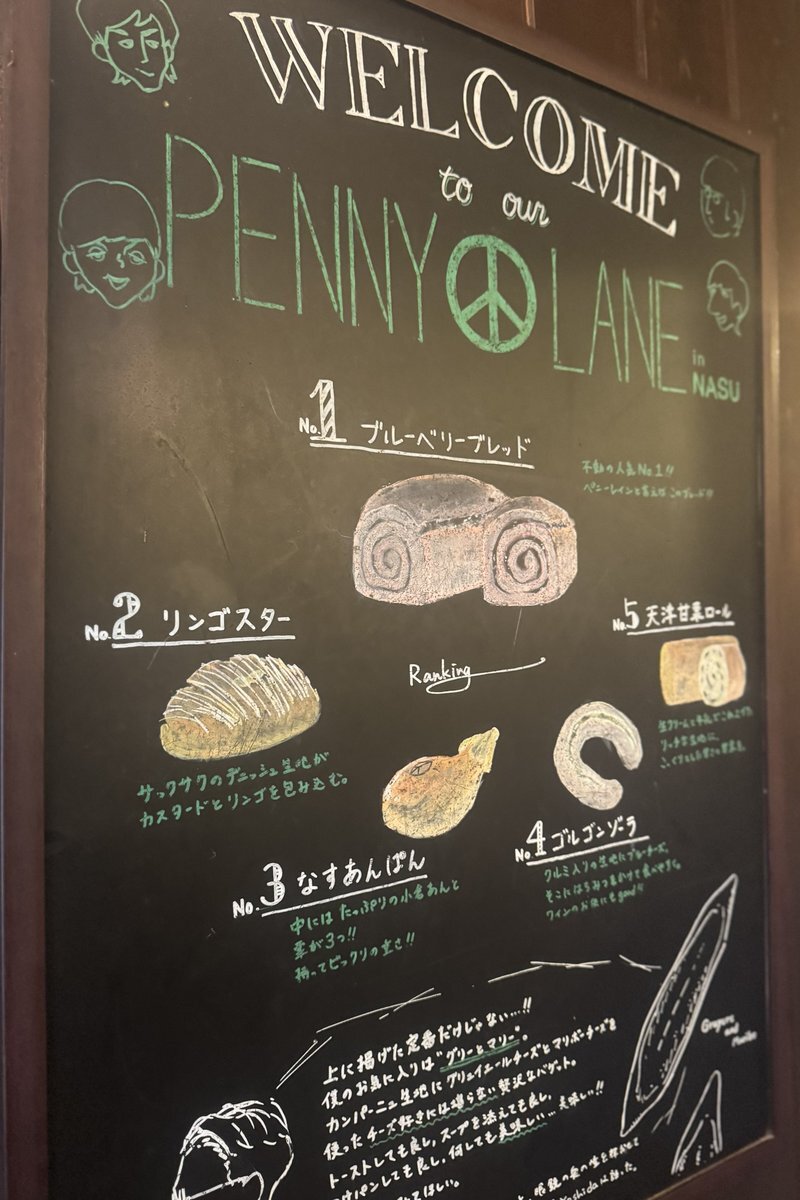 WELCOME
to our
PENNY LANE
in
NASU
No.1 ブルーベリーブレッド
不動の人気No.1!!
ペニーレインと言えばこのブレッド!!
No.2 リンゴスター
サックサクのデニッシュ生地が
カスタードとリンゴを包み込む。
Ranking
No.5 天津甘栗ロール
生クリームと牛乳でこね上げた
リッチな生地に
No.3 なすあんぱん
中にはたっぷりの小倉あんと
栗が3つ!!
持ってビックリの重さ!!
No.4 ゴルゴンゾーラ
クルミ入りの生地にブルーチーズ、
そこにはちみつをかけて食べやすく。
ワインのお供にもgood!!
上に掲げた定番だけじゃない…!!
僕のお気に入りは"グリーとマリー"。
カンパーニュ生地にグリュイエールチーズとマリボーチーズを
使ったチーズ好きには堪らない贅沢なバゲット。
トーストしても良し、スープを添えても良し、
パンしても良し、何しても美味しい…美味しい!!
てほしい。
Gruyere
and
Maribo